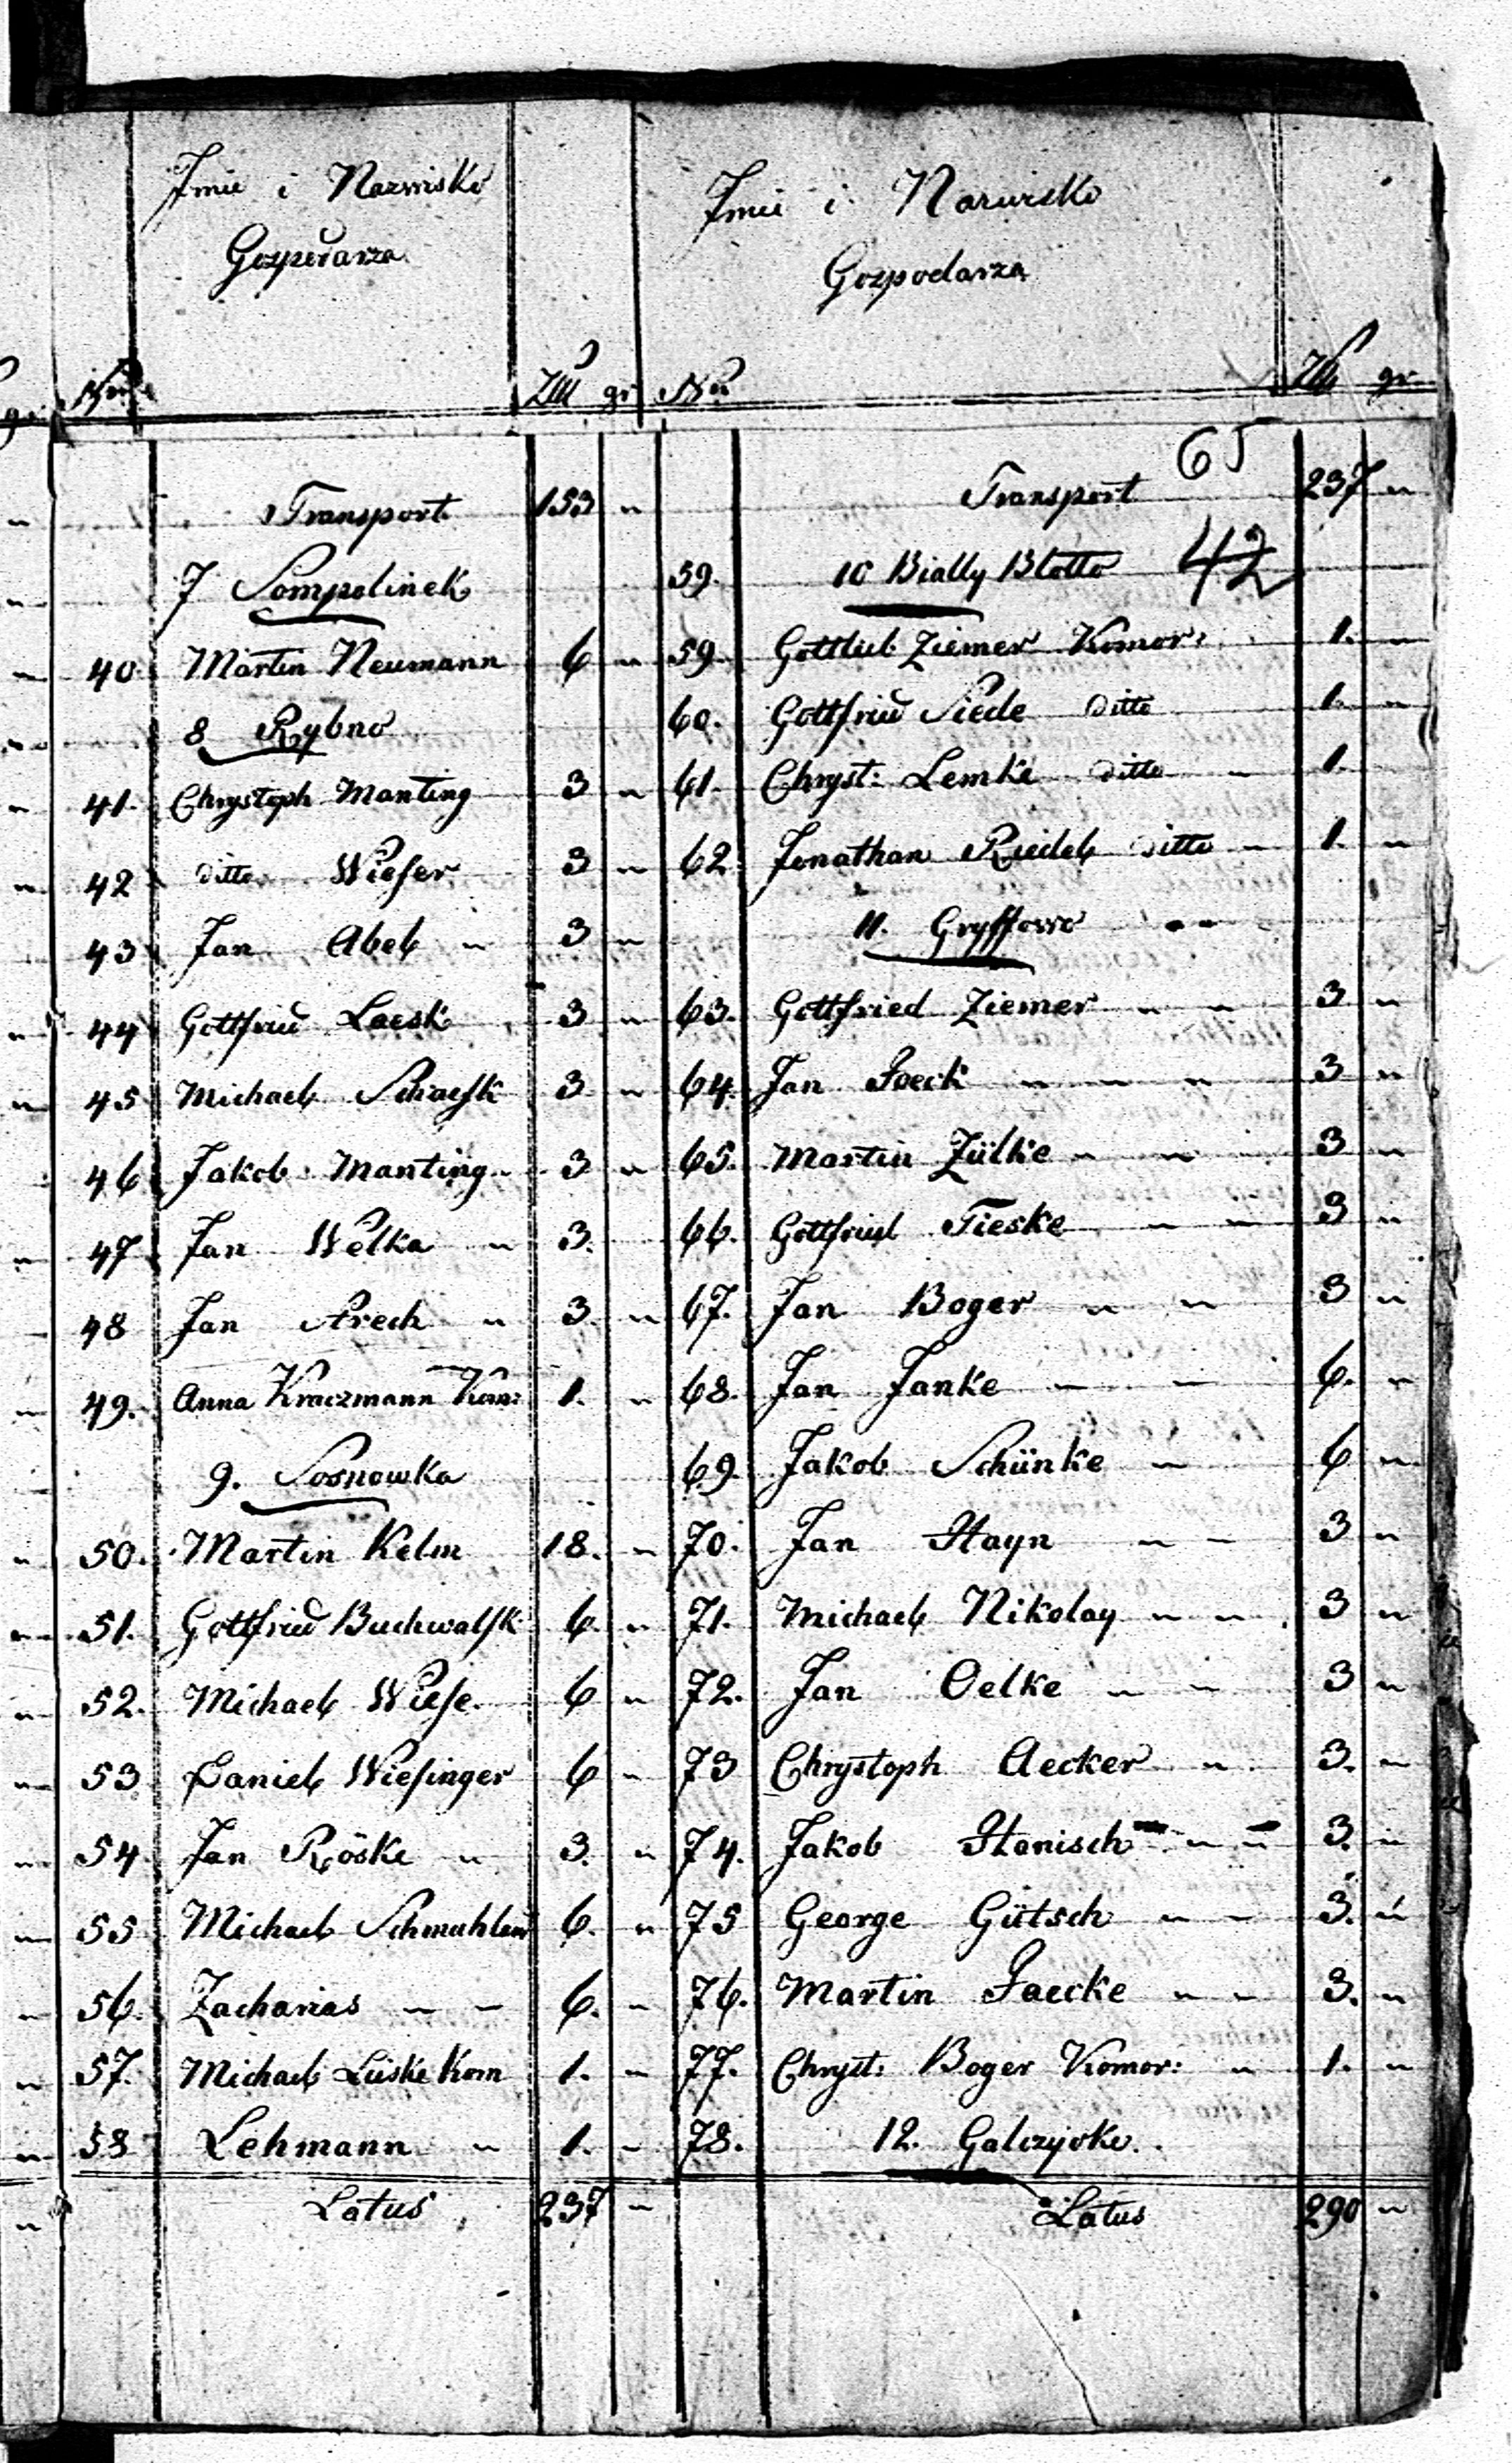 Imie i Nazwisko
Gospodarza
Nr. Złł gr
Transport 153 "
7 Sompolinek
40 Martin Neumann 6 "
8 Rybno
41. Chrystoph Manting 3 "
42 ditto Wieser 3 "
43 Jan Abel " 3 "
44 Gottfried Laesk 3 "
45 Michael Schaesk 3 "
46 Jakob Manting 3 "
47 Jan Welka " 3.
48 Jan Arech " 3. "
49. Anna Kraczmann Kom: 1. "
9. Sosnowka
50. Martin Kelm 18. "
51. Gottfried Buchwalsk 6. "
52. Michael Wiese 6 "
53 Daniel Wiesinger 6 "
54. Jan Röske " 3. "
55 Michael 6. "
56. Zacharias " " 6. "
57. Michael Lüske Kom 1. "
58 Lehmann " 1. "
Latus 237 "
Imie i Nazwisko
Gospodarza
Nr Złł gr.
65
Transport 237 "
59. 10 Bially Blotto 42
59. Gottlieb Ziemer Komor: 1. "
60. Gottfried Siede ditto 1. "
61. Chryst: Lemke ditto " 1.
62 Jonathan Riedel ditto " 1. "
11. Gryffowo " "
63. Gottfried Ziemer " " 3 "
64. Jan Joeck " " " 3 "
65. Martin Zülke " " 3 "
66. Gottfried Tieske " " 3 "
67. Jan Boger " " 3 "
68. Jan Janke " " 6. "
69. Jakob Schünke " 6 "
70. Jan Hayn " " 3 "
71. Michael Nikolay " " 3 "
72. Jan Oelke " " 3 "
73 Chrystoph Aecker " 3. "
74. Jakob Hanisch " " 3. "
75 George Gütsch " " 3. "
76. Martin Jaecke " " 3. "
77. Chryst: Boger Komor: " 1. "
78. 12. Galczycke.
Latus 290 "